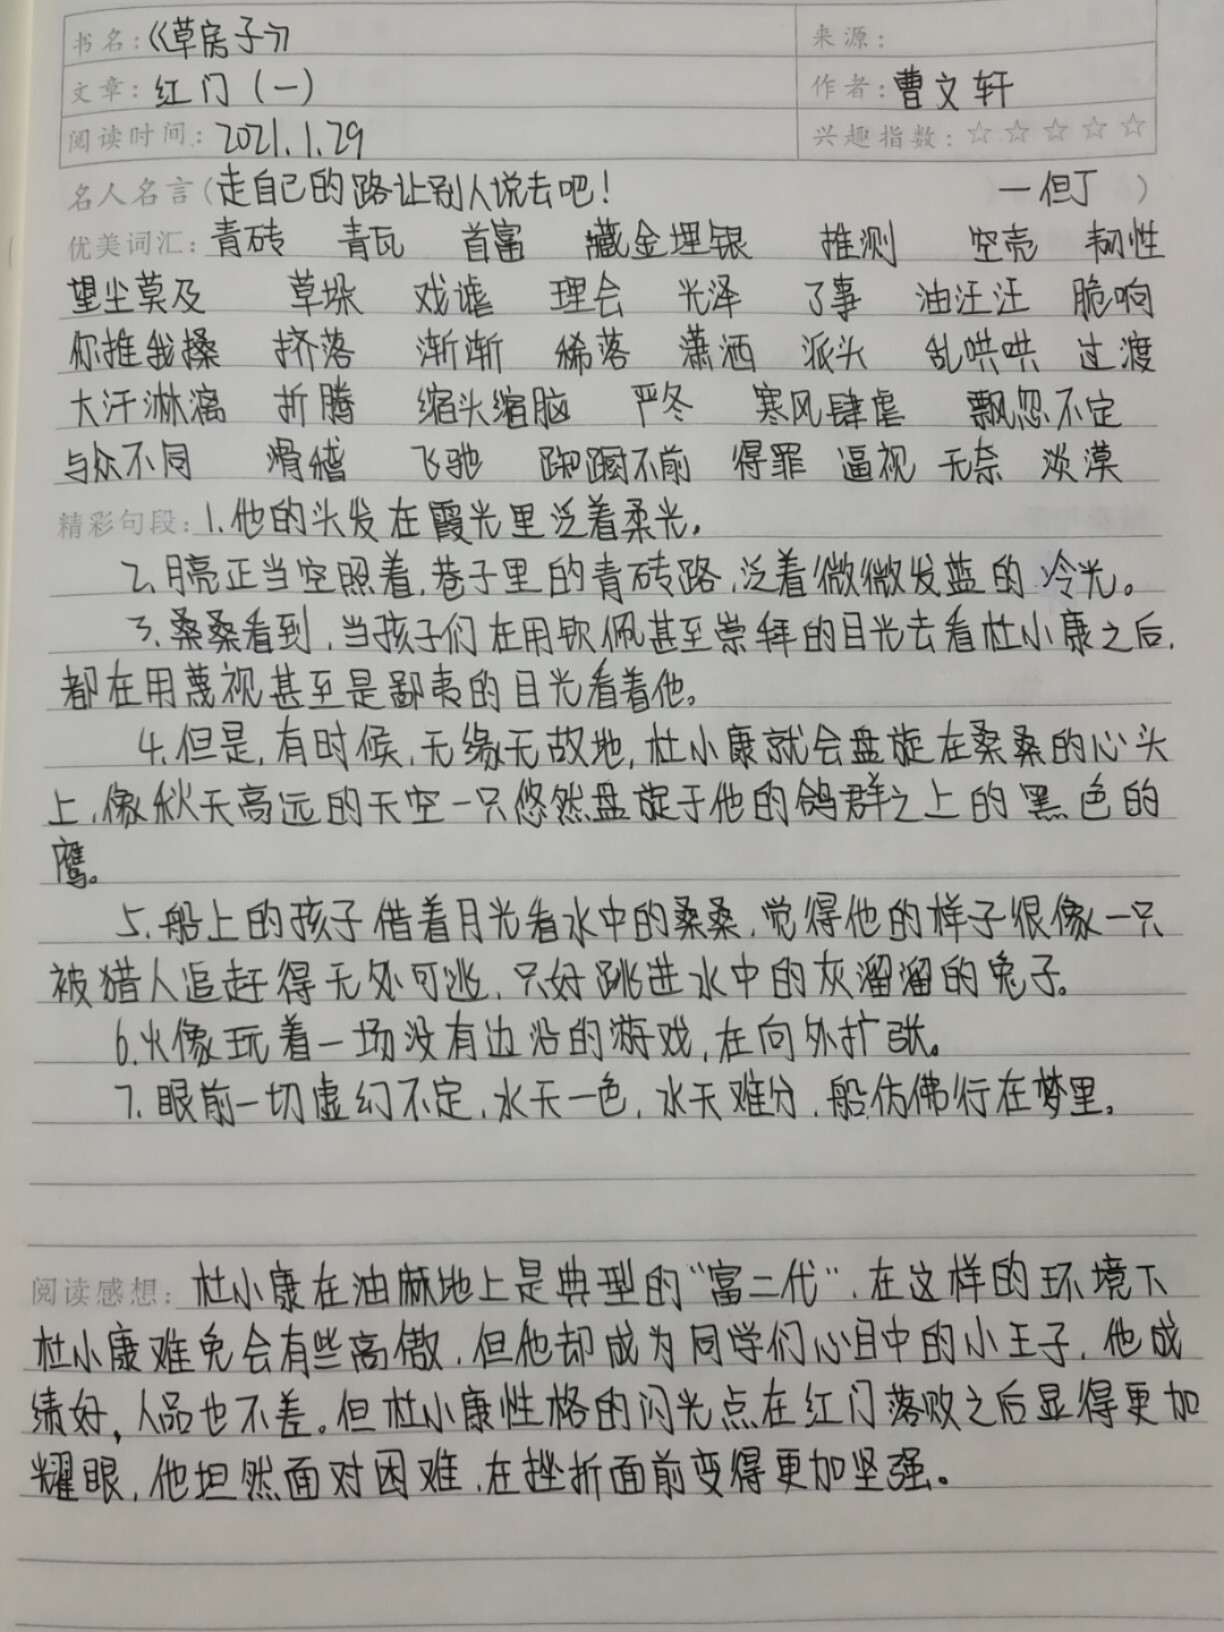 书名：《草房子》 来源：
文章：红门（一） 作者：曹文轩
阅读时间：2021.1.29 兴趣指数：☆☆☆☆☆
名人名言（走自己的路让别人说去吧！ —但丁 ）
优美词汇：青砖 青瓦 首富 藏金埋银 推测 空壳 韧性
望尘莫及 草垛 戏谑 理会 光泽 了事 油汪汪 脆响
你推我搡 挤落 渐渐 稀落 潇洒 派头 乱哄哄 过渡
大汗淋漓 折腾 缩头缩脑 严冬 寒风肆虐 飘忽不定
与众不同 滑稽 飞驰 踟蹰不前 得罪 逼视 无奈 淡漠
精彩句段：1.他的头发在霞光里泛着柔光。
2.月亮正当空照着，巷子里的青砖路，泛着微微发蓝的冷光。
3.桑桑看到，当孩子们在用钦佩甚至崇拜的目光去看杜小康之后，
都在用蔑视甚至是鄙夷的目光看着他。
4.但是，有时候，无缘无故地，杜小康就会盘旋在桑桑的心头
上，像秋天高远的天空一只悠然盘旋于他的鸽群之上的黑色的
鹰。
5.船上的孩子借着月光看水中的桑桑，觉得他的样子很像一只
被猎人追赶得无处可逃，只好跳进水中的灰溜溜的兔子。
6.火像玩着一场没有边沿的游戏，在向外扩张。
7.眼前一切虚幻不定，水天一色，水天难分，船仿佛行在梦里。
阅读感想：杜小康在油麻地上是典型的“富二代”，在这样的环境下
杜小康难免会有些高傲，但他却成为同学们心目中的小王子，他成
绩好，人品也不差。但杜小康性格的闪光点在红门落败之后显得更加
耀眼，他坦然面对困难，在挫折面前变得更加坚强。